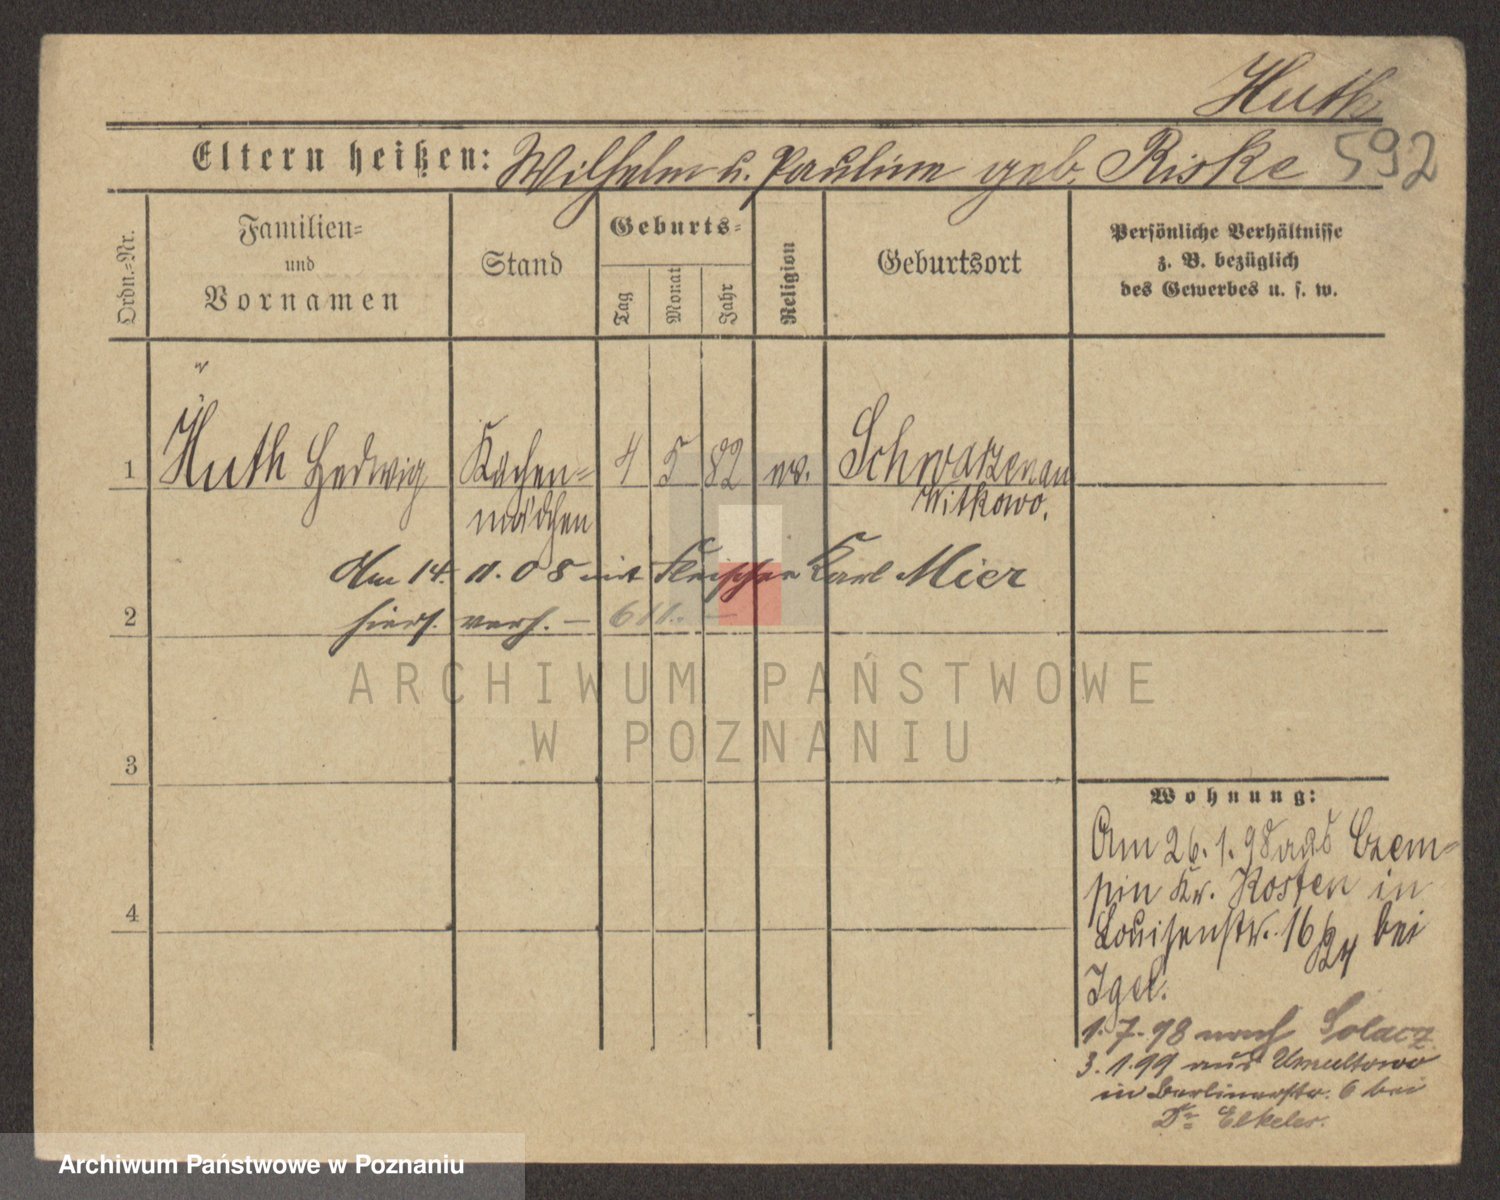 Huth
592
Eltern heißen: Wilhelm u. Pauline geb. Riske
Ordn.=Nr.
Familien=
und
Vornamen
Stand
Geburts=
Tag
Monat
Jahr
Religion
Geburtsort
Persönliche Verhältnisse
z. B. bezüglich
des Gewerbes u. s. w.
1 Huth Hedwig Küchen= 4 5 82 ev. Schwarzenau
mädchen Witkowo.
Am 14. 11. 08 mit Fleischer Karl Mier
2 hiers. verh. — 611. —
ARCHIWUM PAŃSTWOWE
W POZNANIU
3
Wohnung:
Am 26. 1. 98 aus Czem=
pin Kr. Kosten in
4
Louisenstr. 16 bei
Igel.
1. 7. 98 nach Solacz
3. 1. 99 aus Umultowo
in Berlinerstr. 6 bei
Dr. Elkeles.
Archiwum Państwowe w Poznaniu